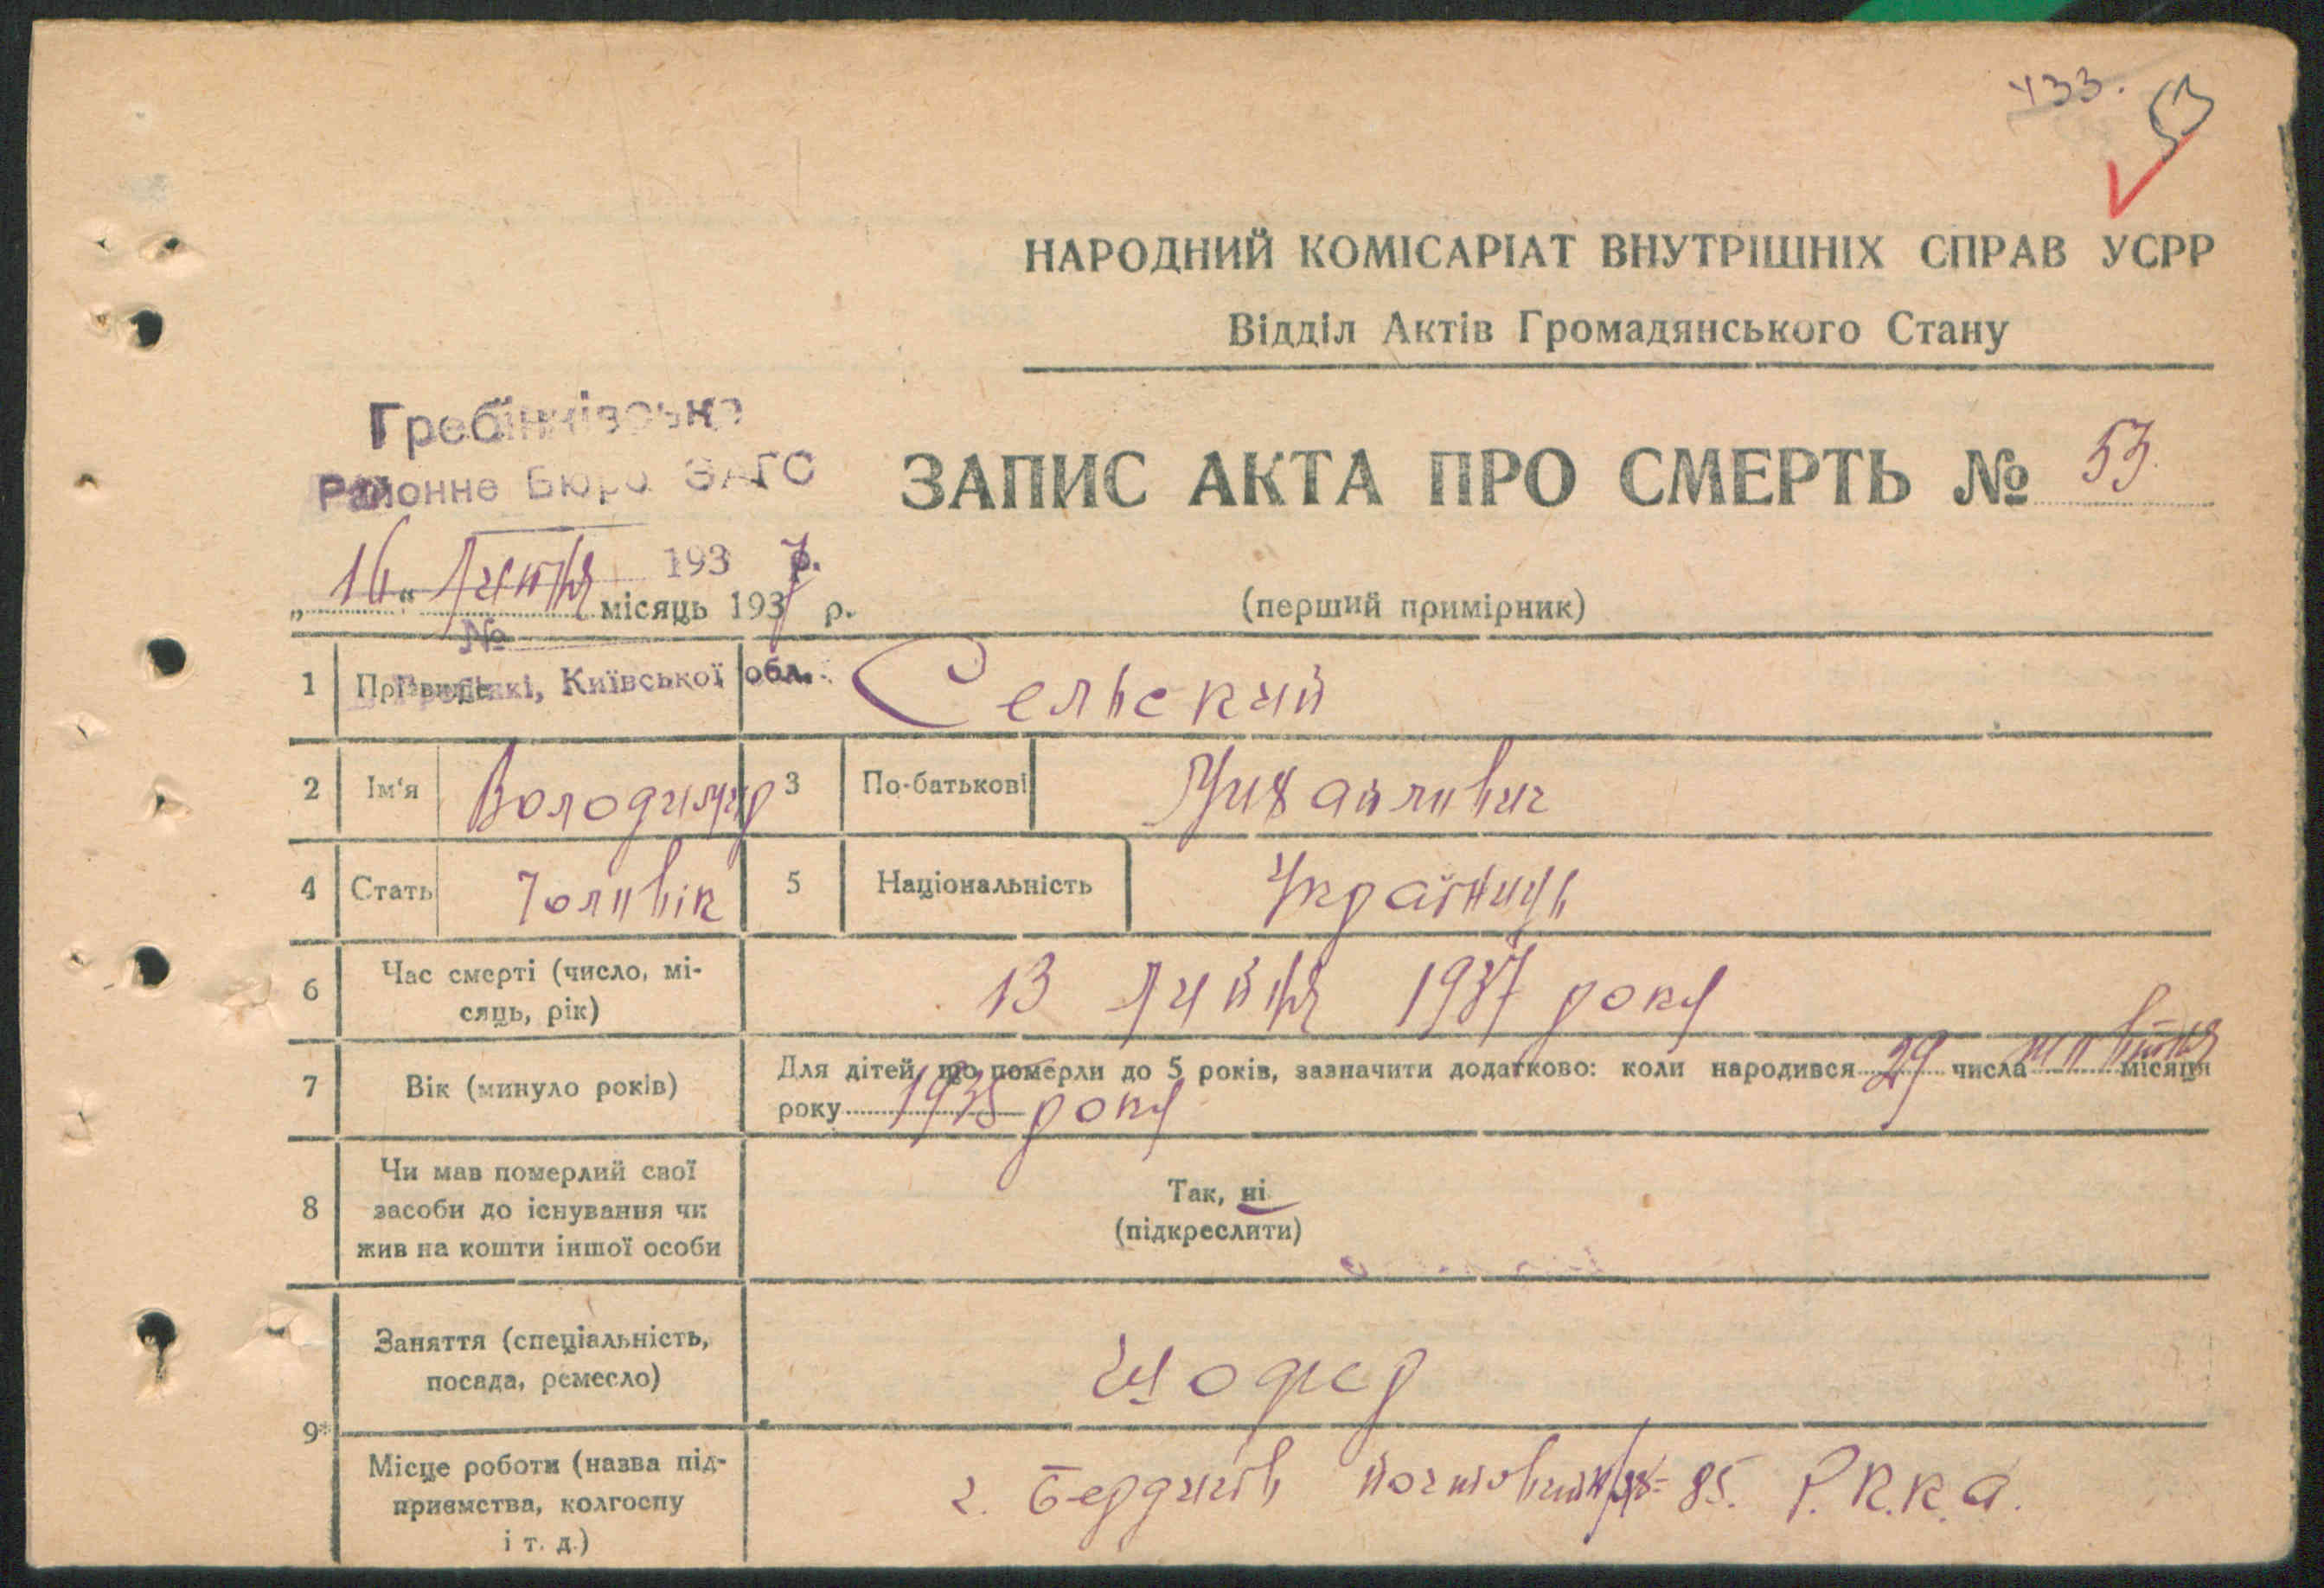 433.
53
НАРОДНИЙ КОМІСАРІАТ ВНУТРІШНІХ СПРАВ УСРР
Відділ Актів Громадянського Стану
Гребінківське
Районне Бюро ЗАГС
ЗАПИС АКТА ПРО СМЕРТЬ № 53.
193 7 р.
„16“ липня місяць 1937 р.
(перший примірник)
№
Гребінкі, Київської обл.
1 Прізвище Сельский
2 Ім'я Володимир 3 По-батькові Михайлович
4 Стать Чоловік 5 Національність Українець
6 Час смерті (число, мі-
сяць, рік) 13 липня 1937 року
7 Вік (минуло років) Для дітей, що померли до 5 років, зазначити додатково: коли народився 29 числа жовтня місяця
року 1935 року
8 Чи мав померлий свої
засоби до існування чи
жив на кошти іншої особи
Так, ні
(підкреслити)
9* Заняття (спеціальність,
посада, ремесло) шофер
Місце роботи (назва під-
приємства, колгоспу
і т. д.)
г. Бердичів 85. Р.К.К.А.